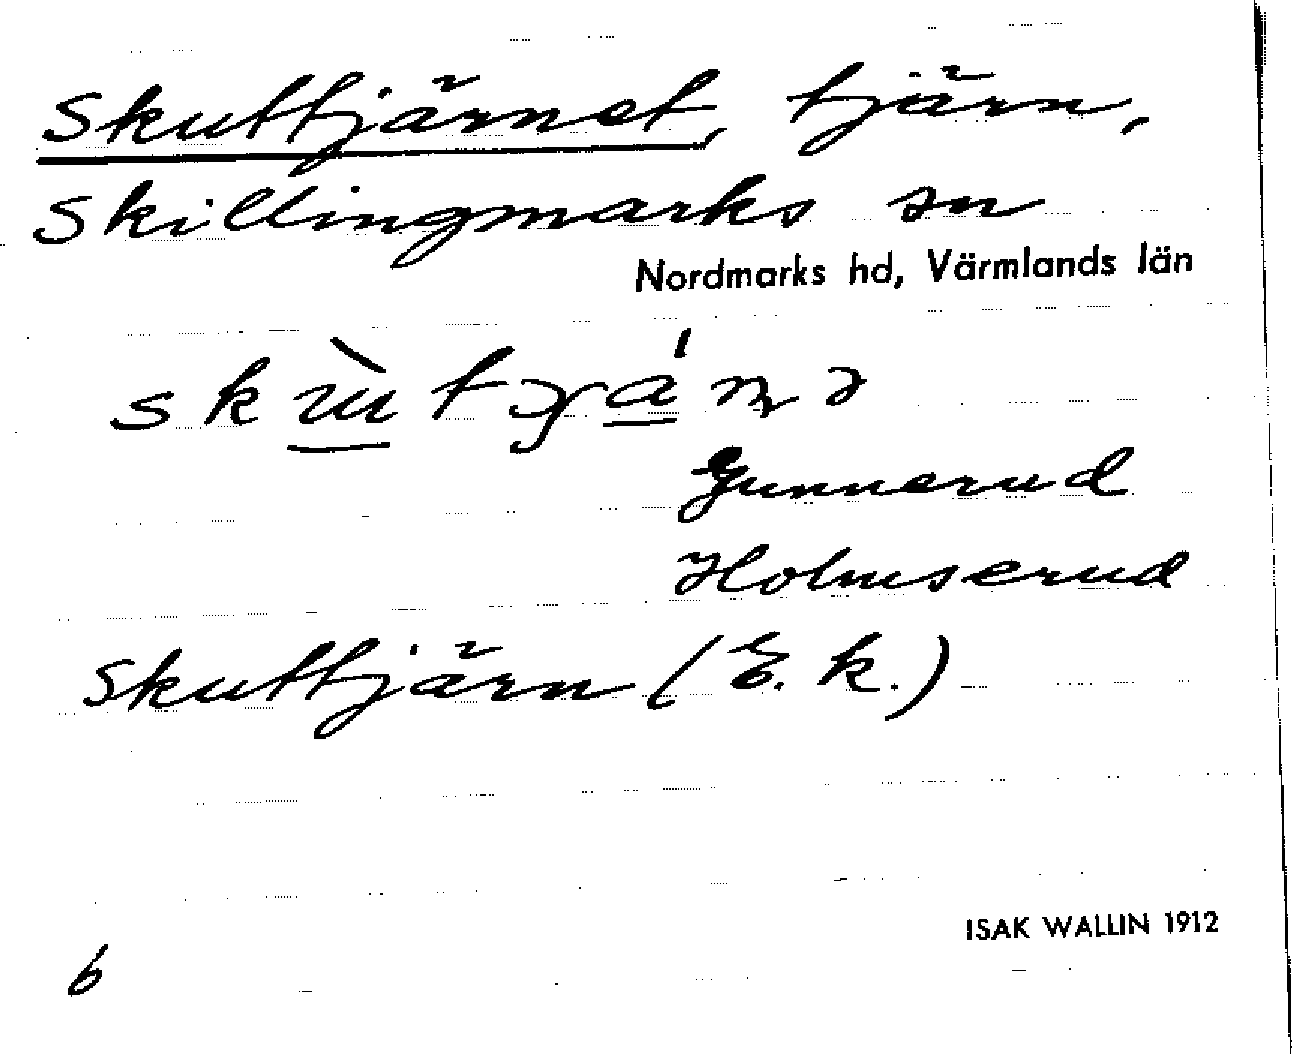 Skuttjärnet, tjärn,
Skillingmarks sn
Nordmarks hd, Värmlands län
Gunnerud
Holmserud
Skuttjärn (E. k.)
ISAK WALLIN 1912
6